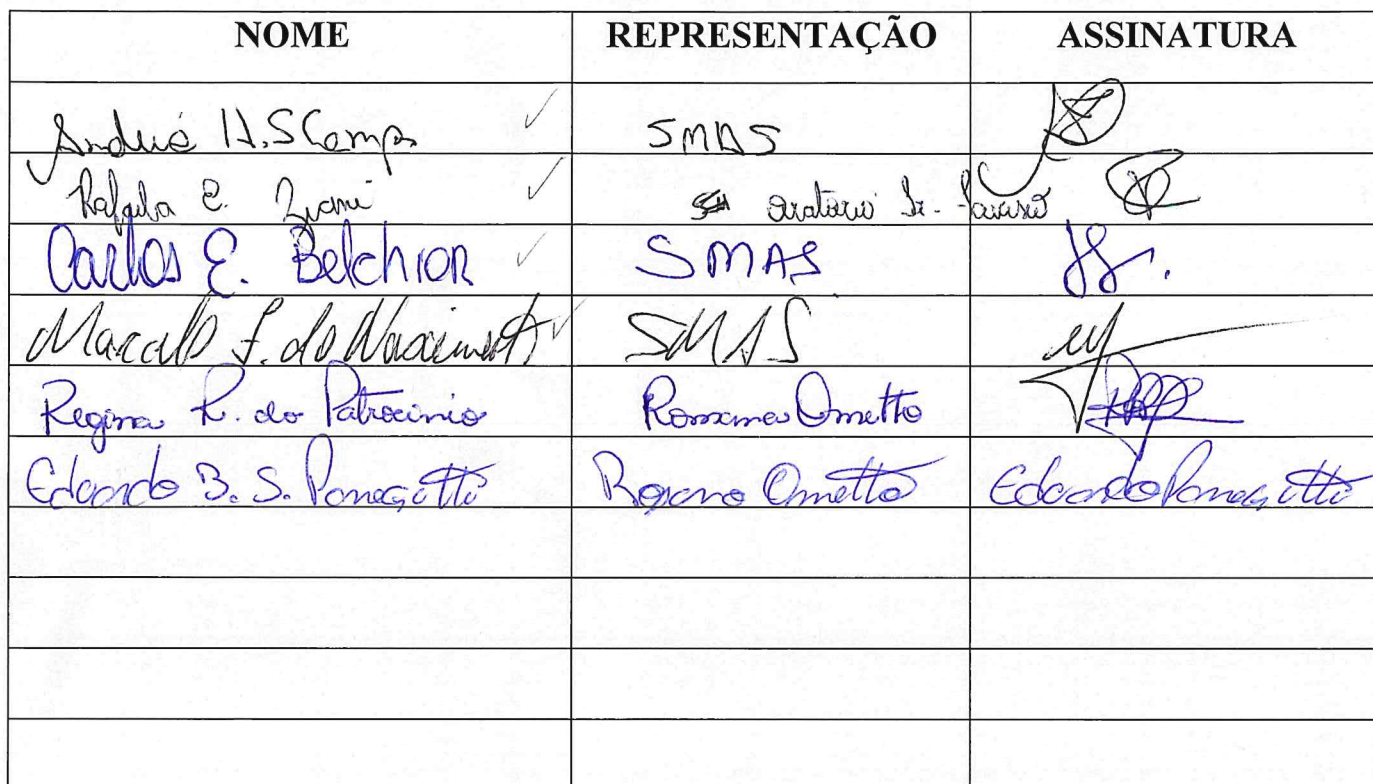 NOME REPRESENTAÇÃO ASSINATURA
André H. S Campos SMAS
Rafaela E. Ziani Oratório Sr.
Carlos E. Belchior SMAS
Marcelo F. do Nascimento SMAS
Regina R. do Patrocinio Romana Ometto
Eduardo B. S. Panegitti Rosana Ometto Eduardo Panegitti